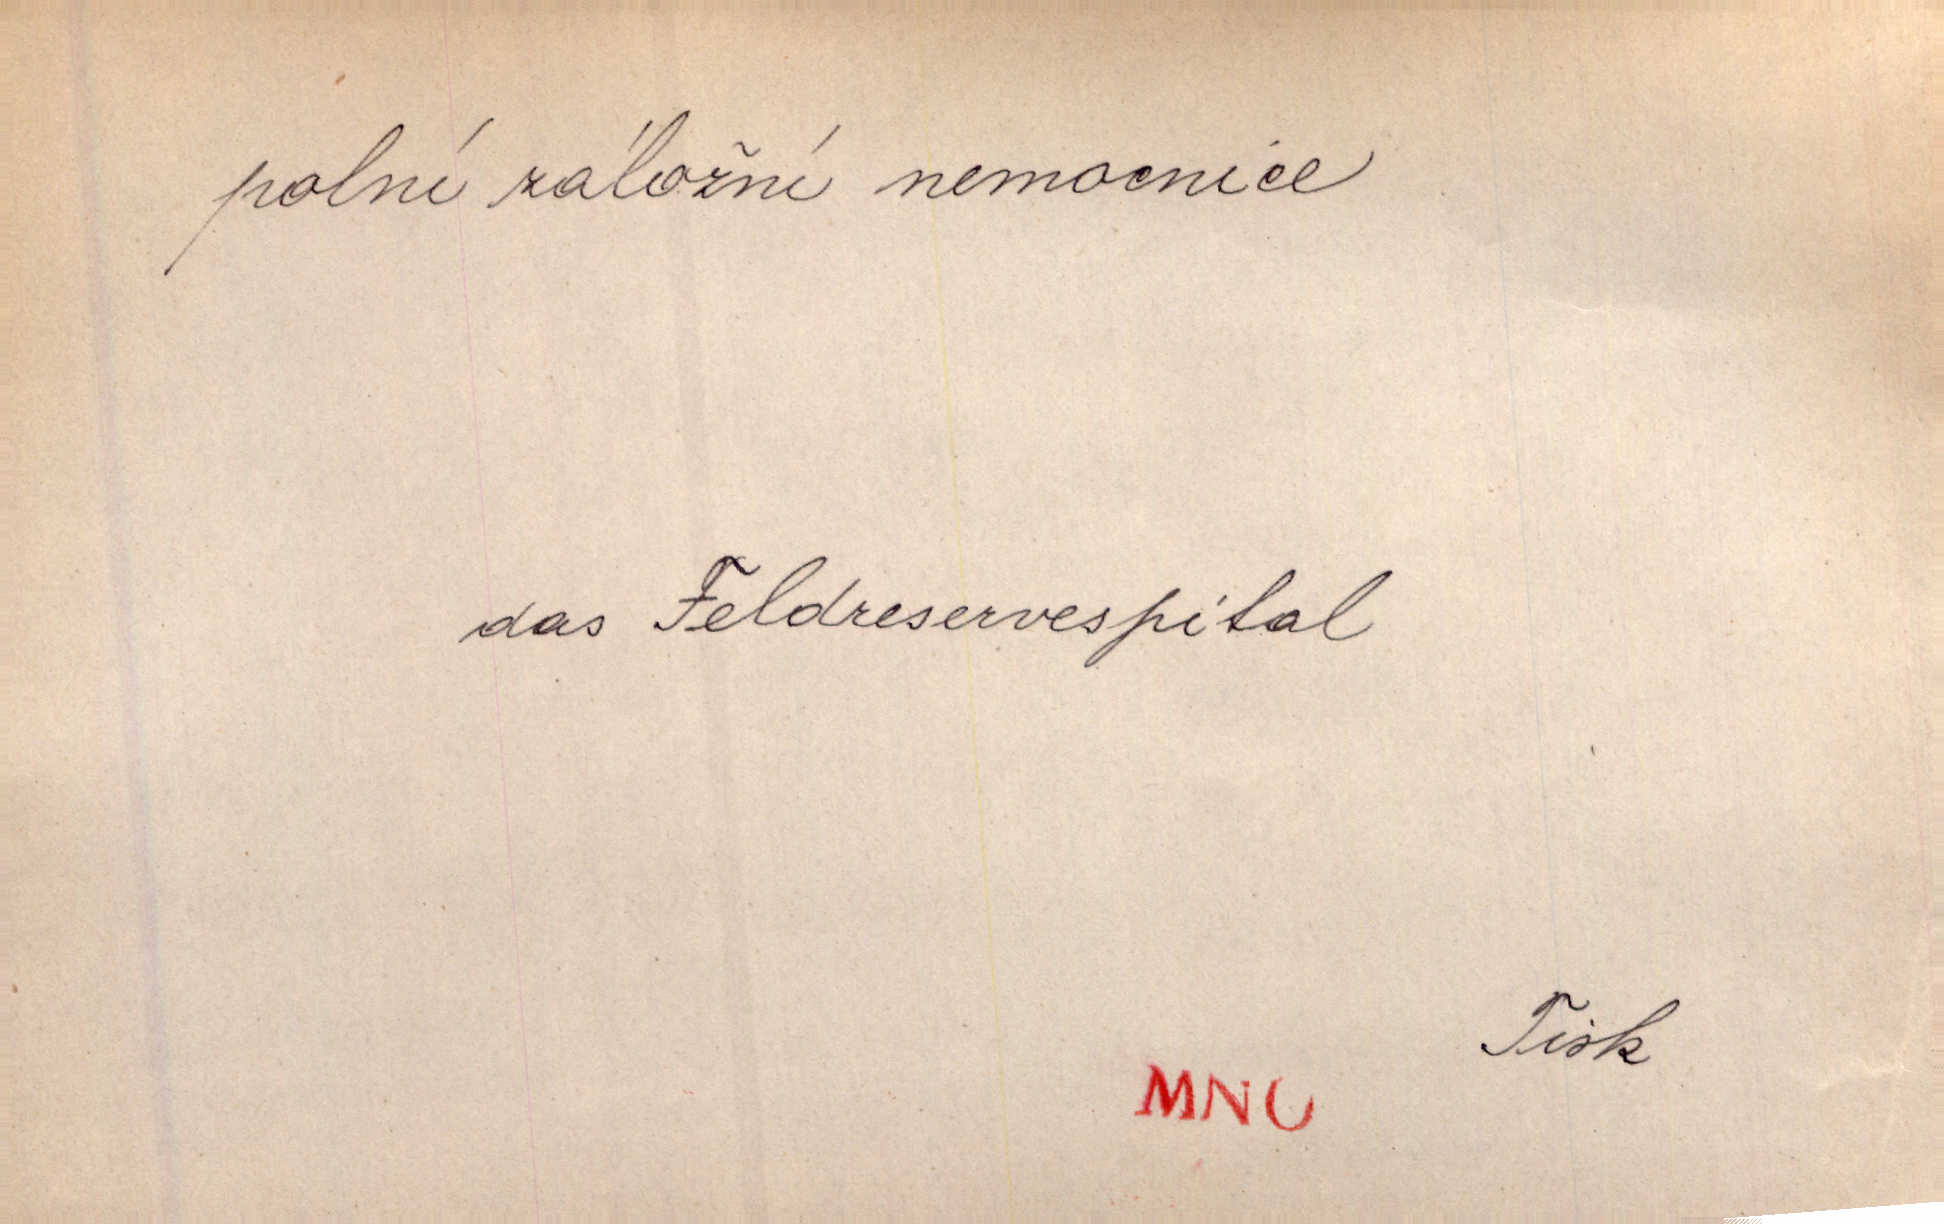 polní záložní nemocnice
das Feldreservespital
Tisk
MNO